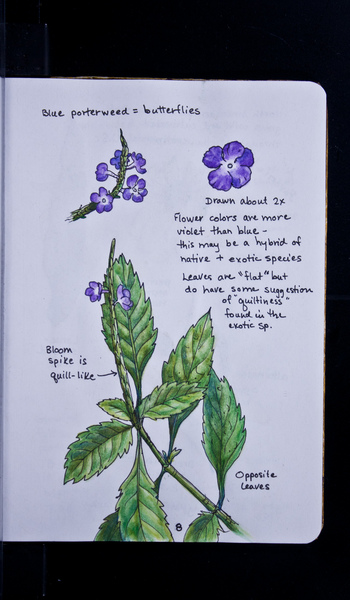 Blue porterweed = butterflies
Drawn about 2x
Flower colors are more
violet than blue -
this may be a hybrid of
native + exotic species
Leaves are "flat" but
do have some suggestion
of "quiltiness"
found in the
exotic sp.
Bloom
spike is
quill-like
Opposite
leaves
8